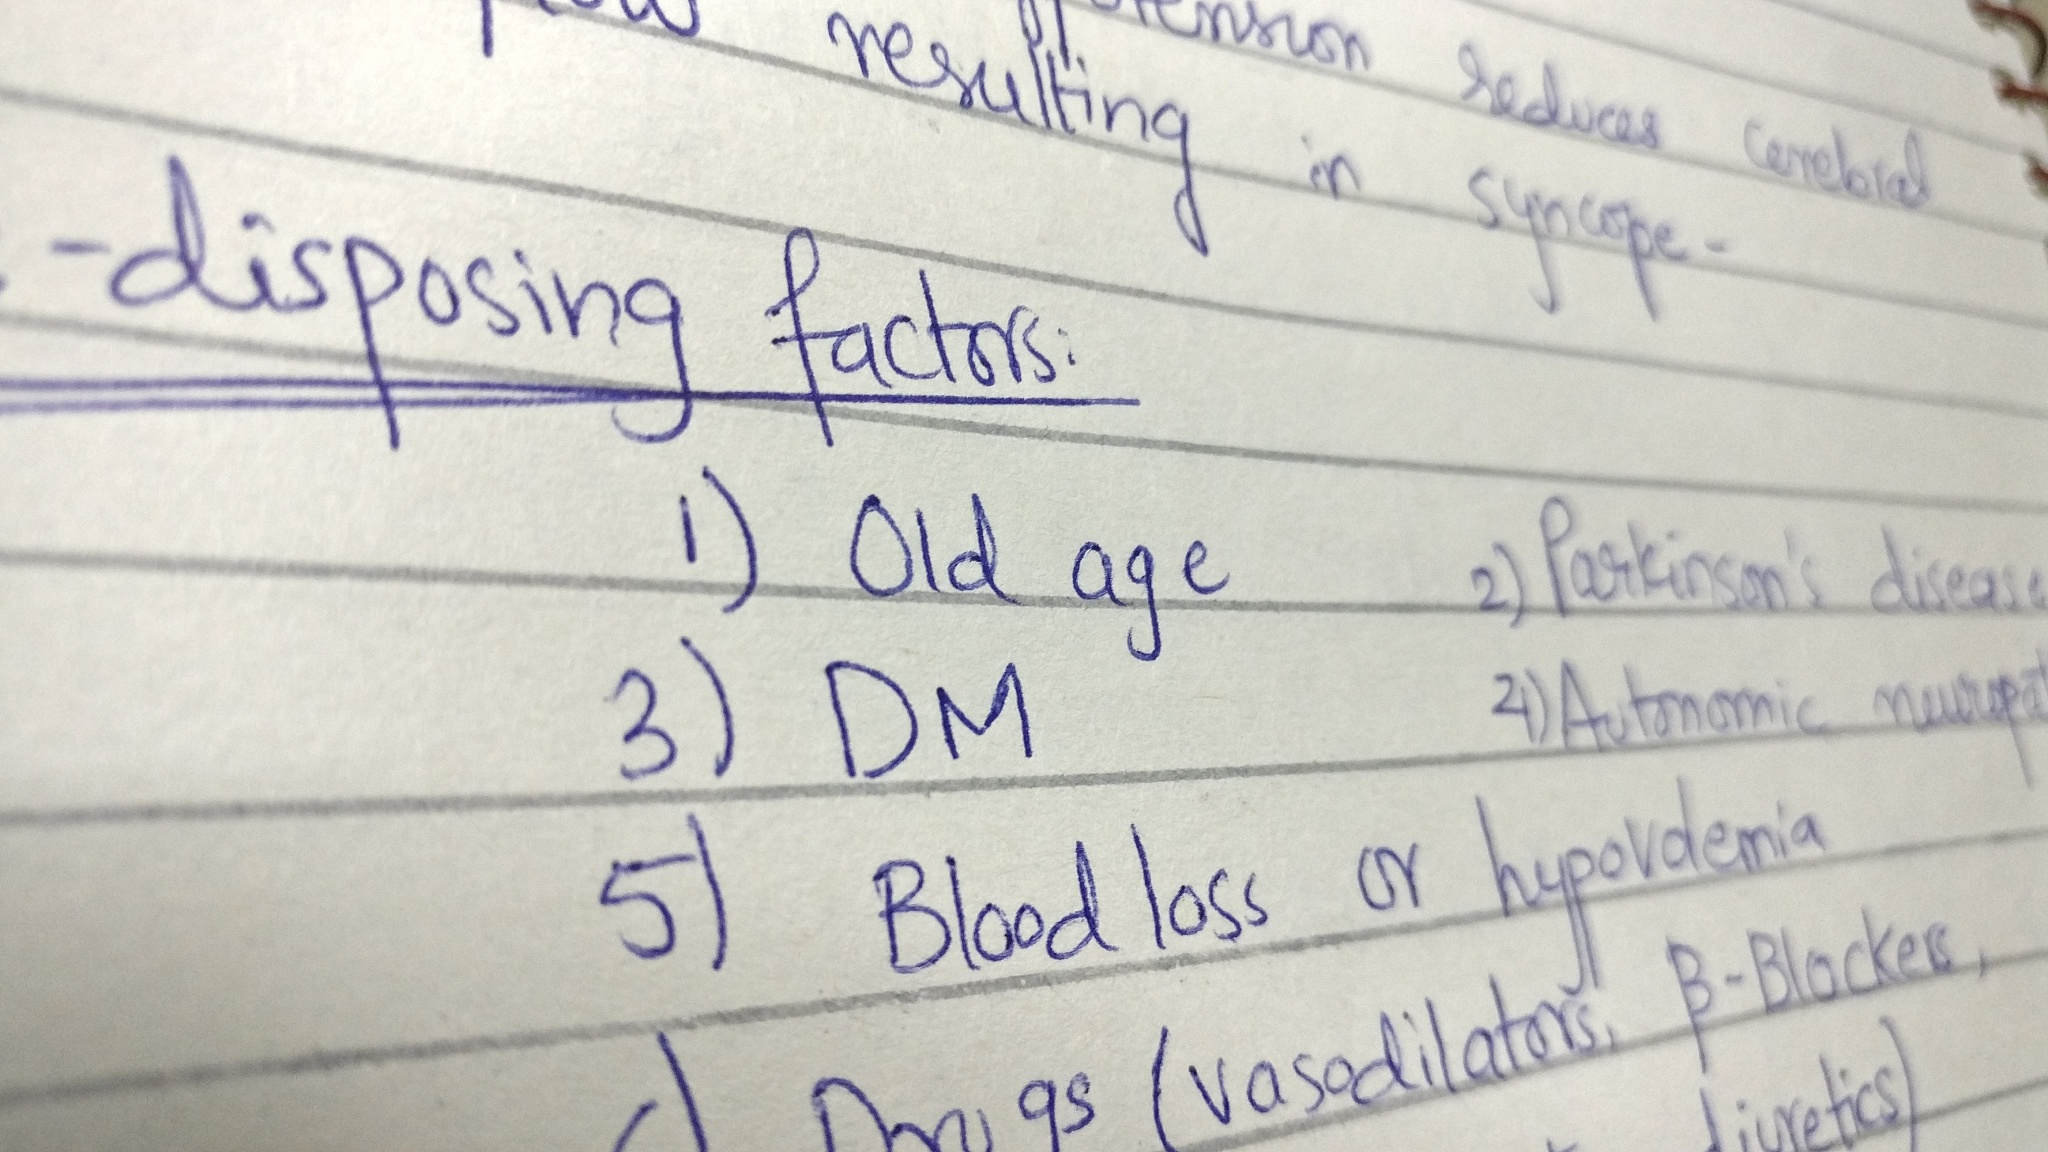 reduces cerebral
resulting in syncope-
-disposing factors:
1) Old age 2) Parkinson's disease
3) DM 4) Autonomic
5) Blood loss or hypovolemia
Drugs (vasodilators, β-Blockers,
diuretics)